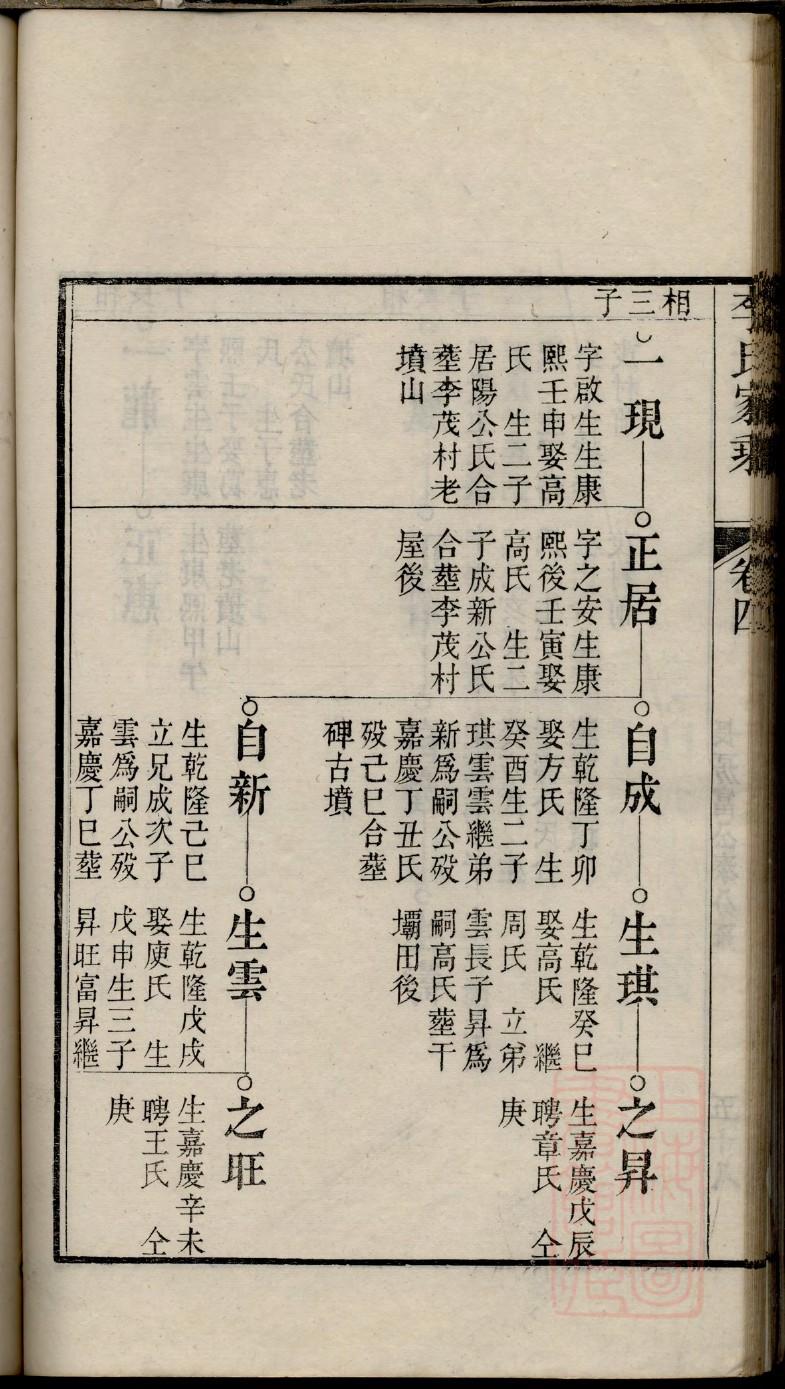 李氏家乘
卷四
相三子
一現
字啟生生康
熙壬申娶高
氏　生二子
居陽公氏合
塟李茂村老
墳山
正居
字之安生康
熙後壬寅娶
高氏　生二
子成新公氏
合塟李茂村
屋後
自成
生乾隆丁卯
娶方氏　生
癸酉生二子
琪雲雲繼弟
新爲嗣公歿
嘉慶丁丑氏
歿己巳合塟
碑古墳
生琪
生乾隆癸巳
娶高氏　繼
周氏　立弟
雲長子昇爲
嗣高氏塟干
壩田後
之昇
生嘉慶戊辰
聘章氏　仝
庚
自新
生乾隆己巳
立兄成次子
雲爲嗣公歿
嘉慶丁巳塟
生雲
生乾隆戊戌
娶庾氏　生
戊申生三子
昇旺富昇繼
之旺
生嘉慶辛未
聘王氏　仝
庚